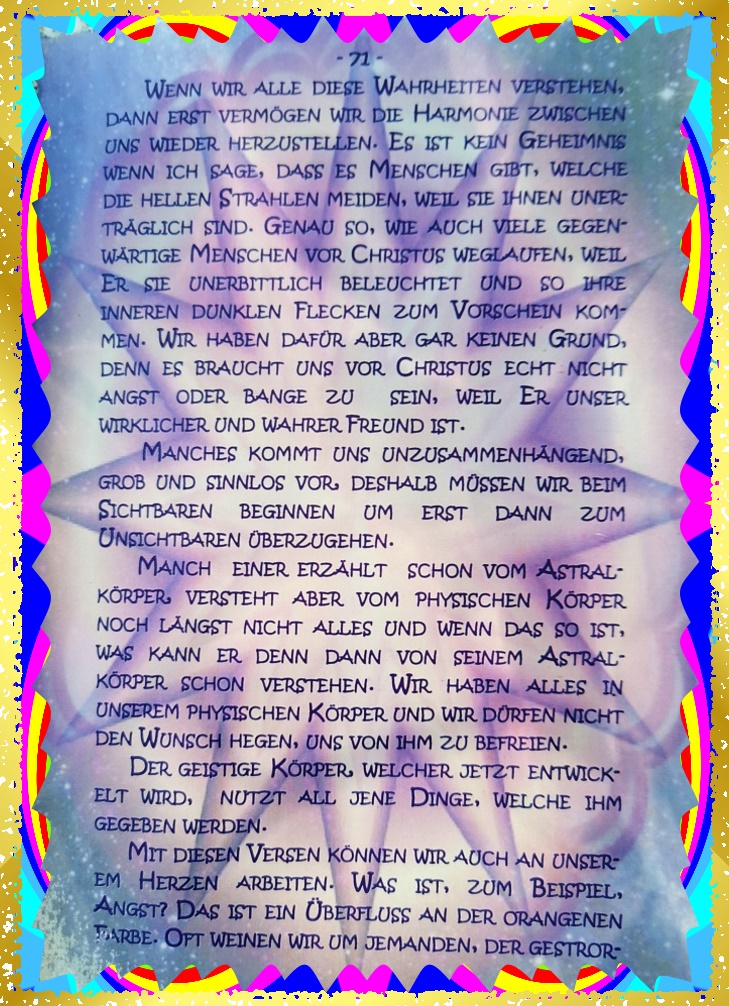 - 71 -
Wenn wir alle diese Wahrheiten verstehen,
dann erst vermögen wir die Harmonie zwischen
uns wieder herzustellen. Es ist kein Geheimnis
wenn ich sage, dass es Menschen gibt, welche
die hellen Strahlen meiden, weil sie ihnen uner-
träglich sind. Genau so, wie auch viele gegen-
wärtige Menschen vor Christus weglaufen, weil
Er sie unerbittlich beleuchtet und so ihre
inneren dunklen Flecken zum Vorschein kom-
men. Wir haben dafür aber gar keinen Grund,
denn es braucht uns vor Christus echt nicht
angst oder bange zu sein, weil Er unser
wirklicher und wahrer Freund ist.
Manches kommt uns unzusammenhängend,
grob und sinnlos vor, deshalb müssen wir beim
Sichtbaren beginnen um erst dann zum
Unsichtbaren überzugehen.
Manch einer erzählt schon vom Astral-
körper, versteht aber vom physischen Körper
noch längst nicht alles und wenn das so ist,
was kann er denn dann von seinem Astral-
körper schon verstehen. Wir haben alles in
unserem physischen Körper und wir dürfen nicht
den Wunsch hegen, uns von ihm zu befreien.
Der geistige Körper, welcher jetzt entwick-
elt wird, nutzt all jene Dinge, welche ihm
gegeben werden.
Mit diesen Versen können wir auch an unser-
em Herzen arbeiten. Was ist, zum Beispiel,
Angst? Das ist ein Überfluss an der orangenen
Farbe. Oft weinen wir um jemanden, der gestror-